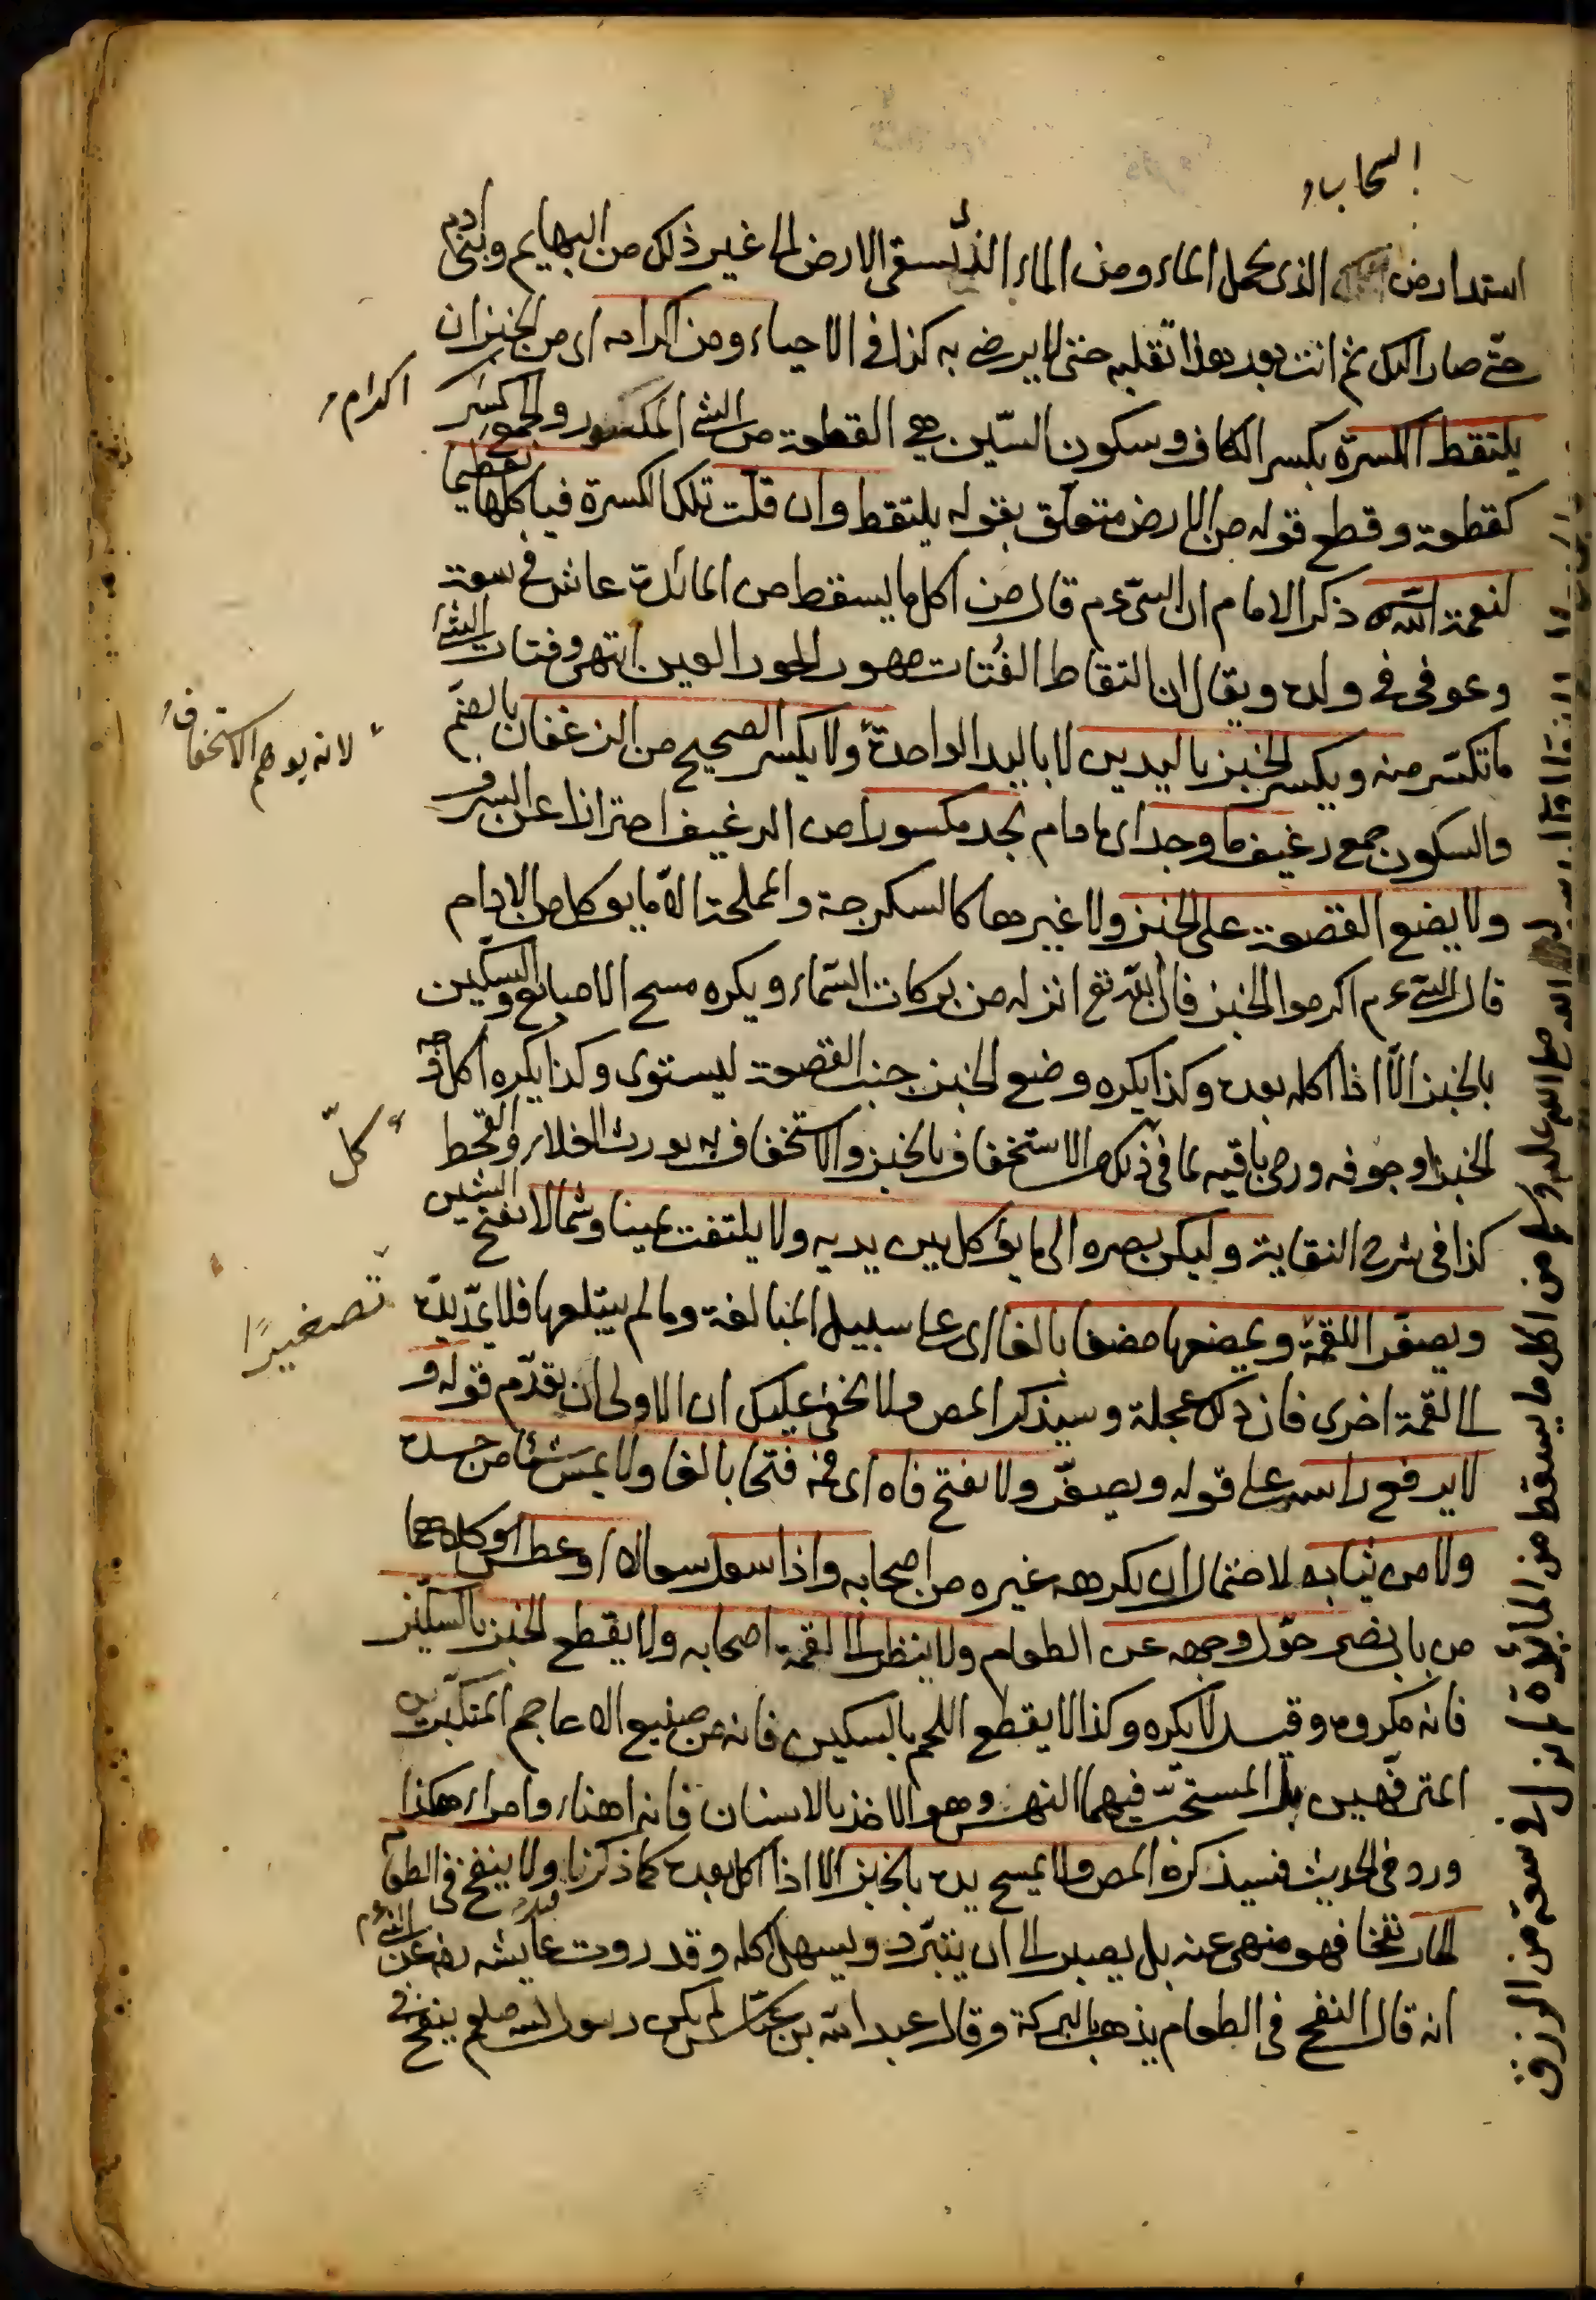 السحاب
استدارض الذى يحمل الماء ومن الماء الذى يسقى الارض الى غير ذلك من البهايم وبنى ادم
حتى صار اكل ثم انت بعد هذا تقلبه حتى لا يرضى به كذا فى الاحياء ومن اكرامه اى من الخبز ان
اكرام
يلتقط الكسرة بكسر الكاف وسكون السّين هى القطعة من الشئ المكسور والجمع كسَر
كقطعة وقطع قوله من الارض متعلق بقوله يلتقط وان قلّت تلك الكسرة فيأكلها تعظيما
لنعمة الله ذكر الامام ان النبىّ عم قال من اكل ما يسقط من المائدة عاش فى سعة
وعوفى فى ولده ويقال ان التقاط الفُتات مهور الحور العين انتهى وفتات الشئ
ما تكسّر منه ويكسر الخبز باليدين لا باليد الواحدة ولا يكسر الصحيح من الرغفان بالضمّ
لانه يوهم الاستخفاف
والسكون جمع رغيف ما وجد اى مادام يجد مكسورا من الرغيف احترازا عن السرف
ولا يضع القصعة على الخبز ولا غيرها كالسكرجة والمملحة الّا ما يوكل من الادام
قال النبىّ عم اكرموا الخبز فان الله تع انزله من بركات السّماء ويكره مسح الاصابع والسكّين
بالخبز الّا اذا اكله بعده وكذا يكره وضع الخبز جنب القصعة ليستوى وكذا يكره اكل وجه
الخبز او جوفه ورمى باقيه لما فى ذلك من الاستخفاف بالخبز والاستخفاف به يورث الغلاء والقحط
كلّ
كذا فى شرح النقاية وليكن بصره الى ما يؤكل بين يديه ولا يلتفت يمينا وشمالا بفتح الشين
ويصغّر اللقمة ويمضغها مضغا بالغا اى على سبيل المبالغة وما لم يبتلعها فلا يمدّ يده
تصغيرًا
الى القمة اخرى فان ذلك عجلة وسيذكر المص ولا يخفى عليك ان الاولى ان يقدّم قوله و
لا يرفع راسه على قوله ويصغّر ولا يفتح فاه اى فمه فتحا بالغا ولا يمسّ شيئا من جسده
ولا من ثيابه لاحتمال ان يكرهه غيره من اصحابه واذا سعل سعالا او عطس وكلاهما
من باب نصر حوّل وجهه عن الطعام ولا ينظر الى لقمة اصحابه ولا يقطع الخبز بالسكّين
فانه مكروه وقيل لا يكره وكذا لا يقطع اللحم بالسكين فانه من صنيع الاعاجم المتكبّرين
المترفّهين بل المستحبّ فيهما النهس وهو الاخذ بالاسنان فانه اهناء وامراء هكذا
ورد فى الحديث فسيذكره المص ولا يمسح يده بالخبز الا اذا اكل بعده كما ذكرنا ولا ينفخ فى الطعام
الحار نفخا فهو منهى عنه بل يصبر الى ان يتبرّد ويسهل اكله وقد روت عايشه رضه عن النبى عم
انه قال النفخ فى الطعام يذهب بالبركة وقال عبد الله بن عبّاس لم يكن رسول الله صلعم ينفخ فى
صلى الله عليه وسلم من اكل ما يسقط من المائدة لم يزل فى سعة من الرزق